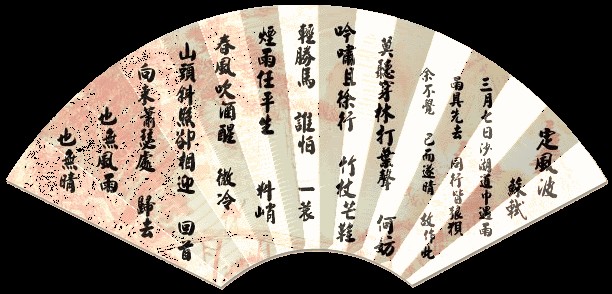 定風波
蘇軾
三月七日沙湖道中遇雨
雨具先去 同行皆狼狽
余不覺 已而遂晴 故作此
莫聽穿林打葉聲 何妨
吟嘯且徐行 竹杖芒鞋
輕勝馬 誰怕 一蓑
煙雨任平生 料峭
春風吹酒醒 微冷
山頭斜照卻相迎 回首
向來蕭瑟處 歸去
也無風雨
也無晴